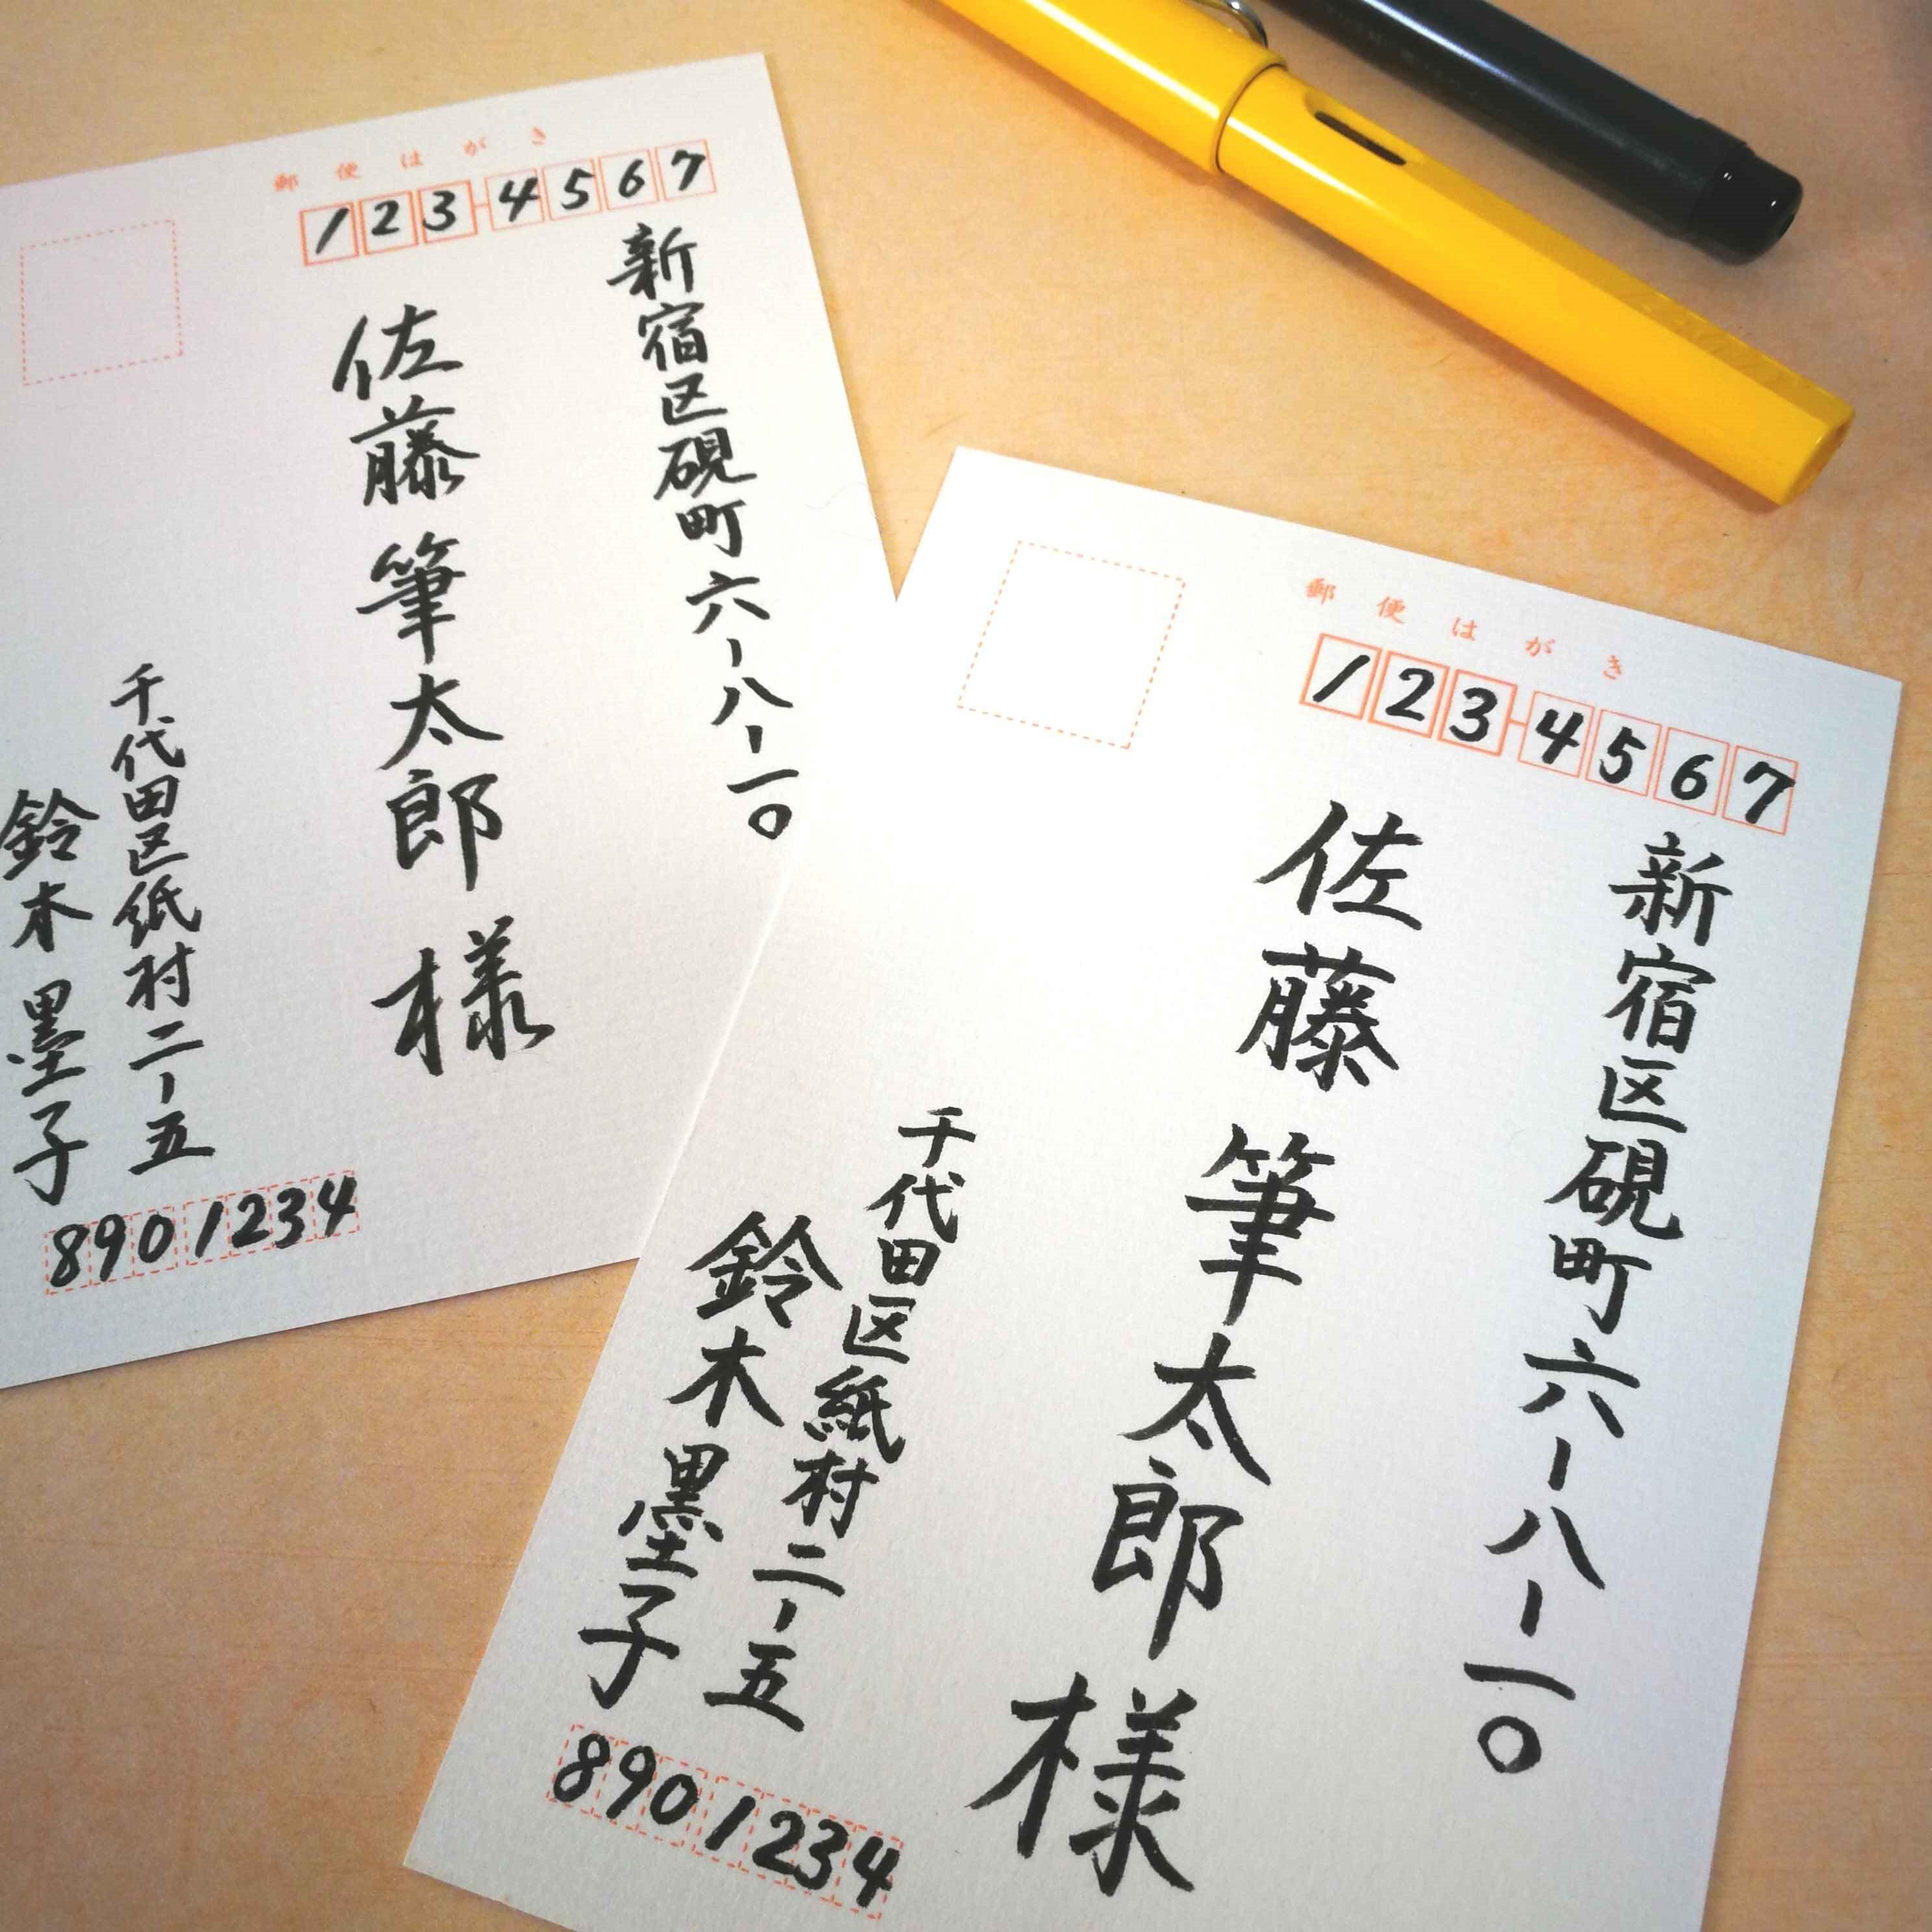 郵便はがき
123-4567
新宿区硯町六-八-一〇
佐藤 筆太郎 様
千代田区紙村二-五
鈴木 墨子
8901234
郵便はがき
123-4567
新宿区硯町六-八-一〇
佐藤 筆太郎 様
千代田区紙村二-五
鈴木 墨子
8901234